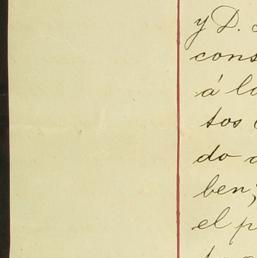 y D.
cons
á lo
tos
do
ben;
el p